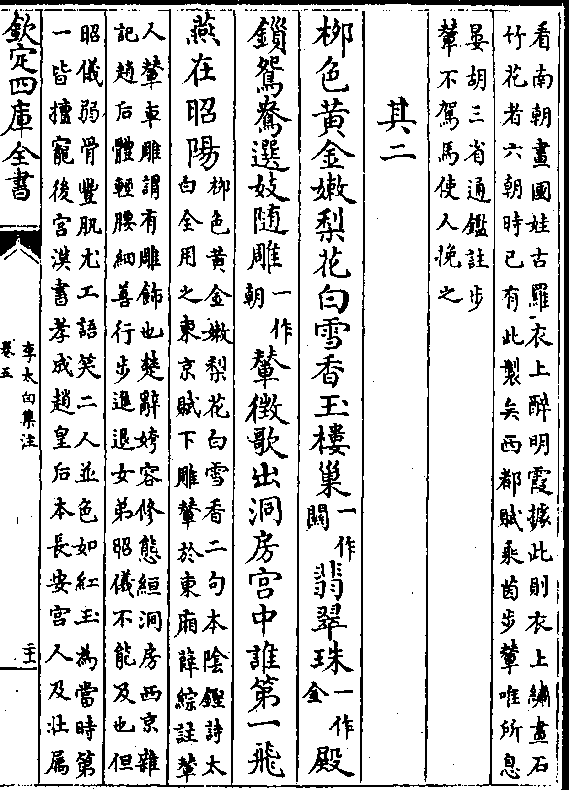 看南朝畫國娃古羅衣上醉明霞據此則衣上繡畫石
竹花者六朝時已有此製矣西都賦乘茵步輦唯所息
晏胡三省通鑑註步
輦不駕馬使人挽之
其二
柳色黃金嫩梨花白雪香玉樓巢一作關翡翠珠一作金殿
鎖鴛鴦選妓隨雕一作朝輦徵歌出洞房宮中誰第一飛
燕在昭陽
栁色黃金嫩梨花白雪香二句本陰鏗詩太
白全用之東京賦下雕輦於東廂薛綜註輦
人輦車雕謂有雕飾也楚辭姱容修態絙洞房西京雜
記趙后體輕腰細善行步進退女弟昭儀不能及也但
昭儀弱骨豐肌尤工語笑二人並色如紅玉為當時第
一皆擅寵後宮漢書孝成趙皇后本長安宮人及壯屬
欽定四庫全書
李太白集注
卷五